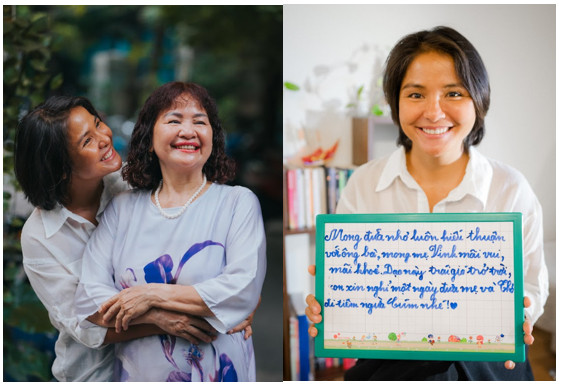 Mong đứa nhỏ luôn hiếu thuận
với ông bà, mong mẹ Vinh mãi vui,
mãi khoẻ. Dạo này trái gió trở trời,
con xin nghỉ một ngày đưa mẹ và
đi tiêm ngừa Cúm nhé!